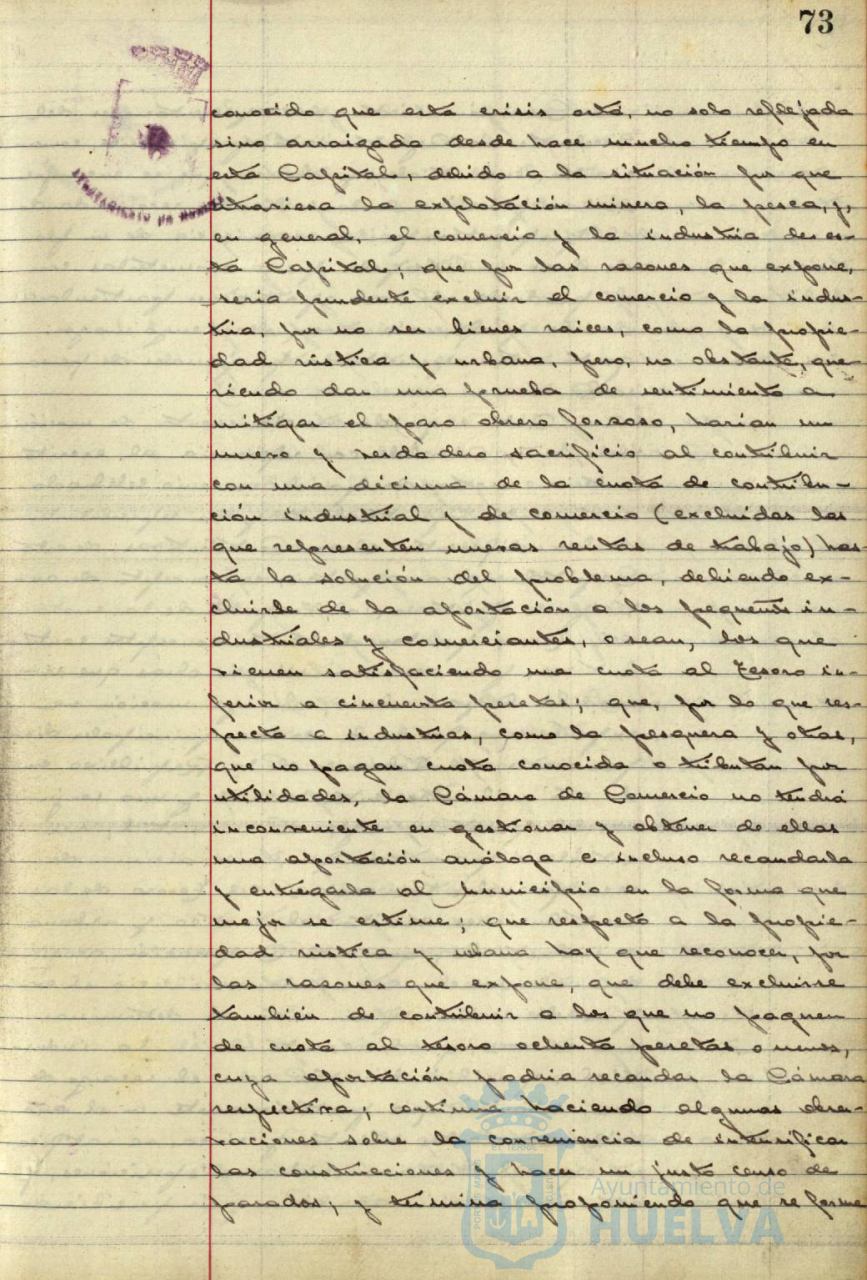 73
AYUNTAMIENTO DE HUELVA
conocido que esta crisis está, no solo reflejada
sino arraigada desde hace mucho tiempo en
esta Capital, debido a la situación por que
atraviesa la explotación minera, la pesca, y,
en general, el comercio y la industria de es-
ta Capital; que por las razones que expone,
seria prudente excluir el comercio y la indus-
tria, por no ser bienes raices, como la propie-
dad rústica y urbana, pero, no obstante, que-
riendo dar una prueba de sentimiento a
mitigar el paro obrero forzoso, harian un
nuevo y verdadero sacrificio al contribuir
con una décima de la cuota de contribu-
ción industrial y de comercio (excluidas las
que representen nuevas rentas de trabajo) has-
ta la solución del problema, debiendo ex-
cluirse de la aportación a los pequeños in-
dustriales y comerciantes, o sean, los que
vienen satisfaciendo una cuota al Tesoro in-
ferior a cincuenta pesetas; que, por lo que res-
pecta a industrias, como la pesquera y otras,
que no pagan cuota conocida o tributan por
utilidades, la Cámara de Comercio no tendrá
inconveniente en gestionar y obtener de ellas
una aportación análoga e incluso recaudarla
y entregarla al Municipio en la forma que
mejor se estime; que respecto a la propie-
dad rústica y urbana hay que reconocer, por
las razones que expone, que debe excluirse
también de contribuir a los que no paguen
de cuota al tesoro ochenta pesetas o menos,
cuya aportación podria recaudar la Cámara
respectiva; continua haciendo algunas obser-
vaciones sobre la conveniencia de intensificar
las construcciones y hacer un justo censo de
parados; y termina proponiendo que se forme
Ayuntamiento de
HUELVA